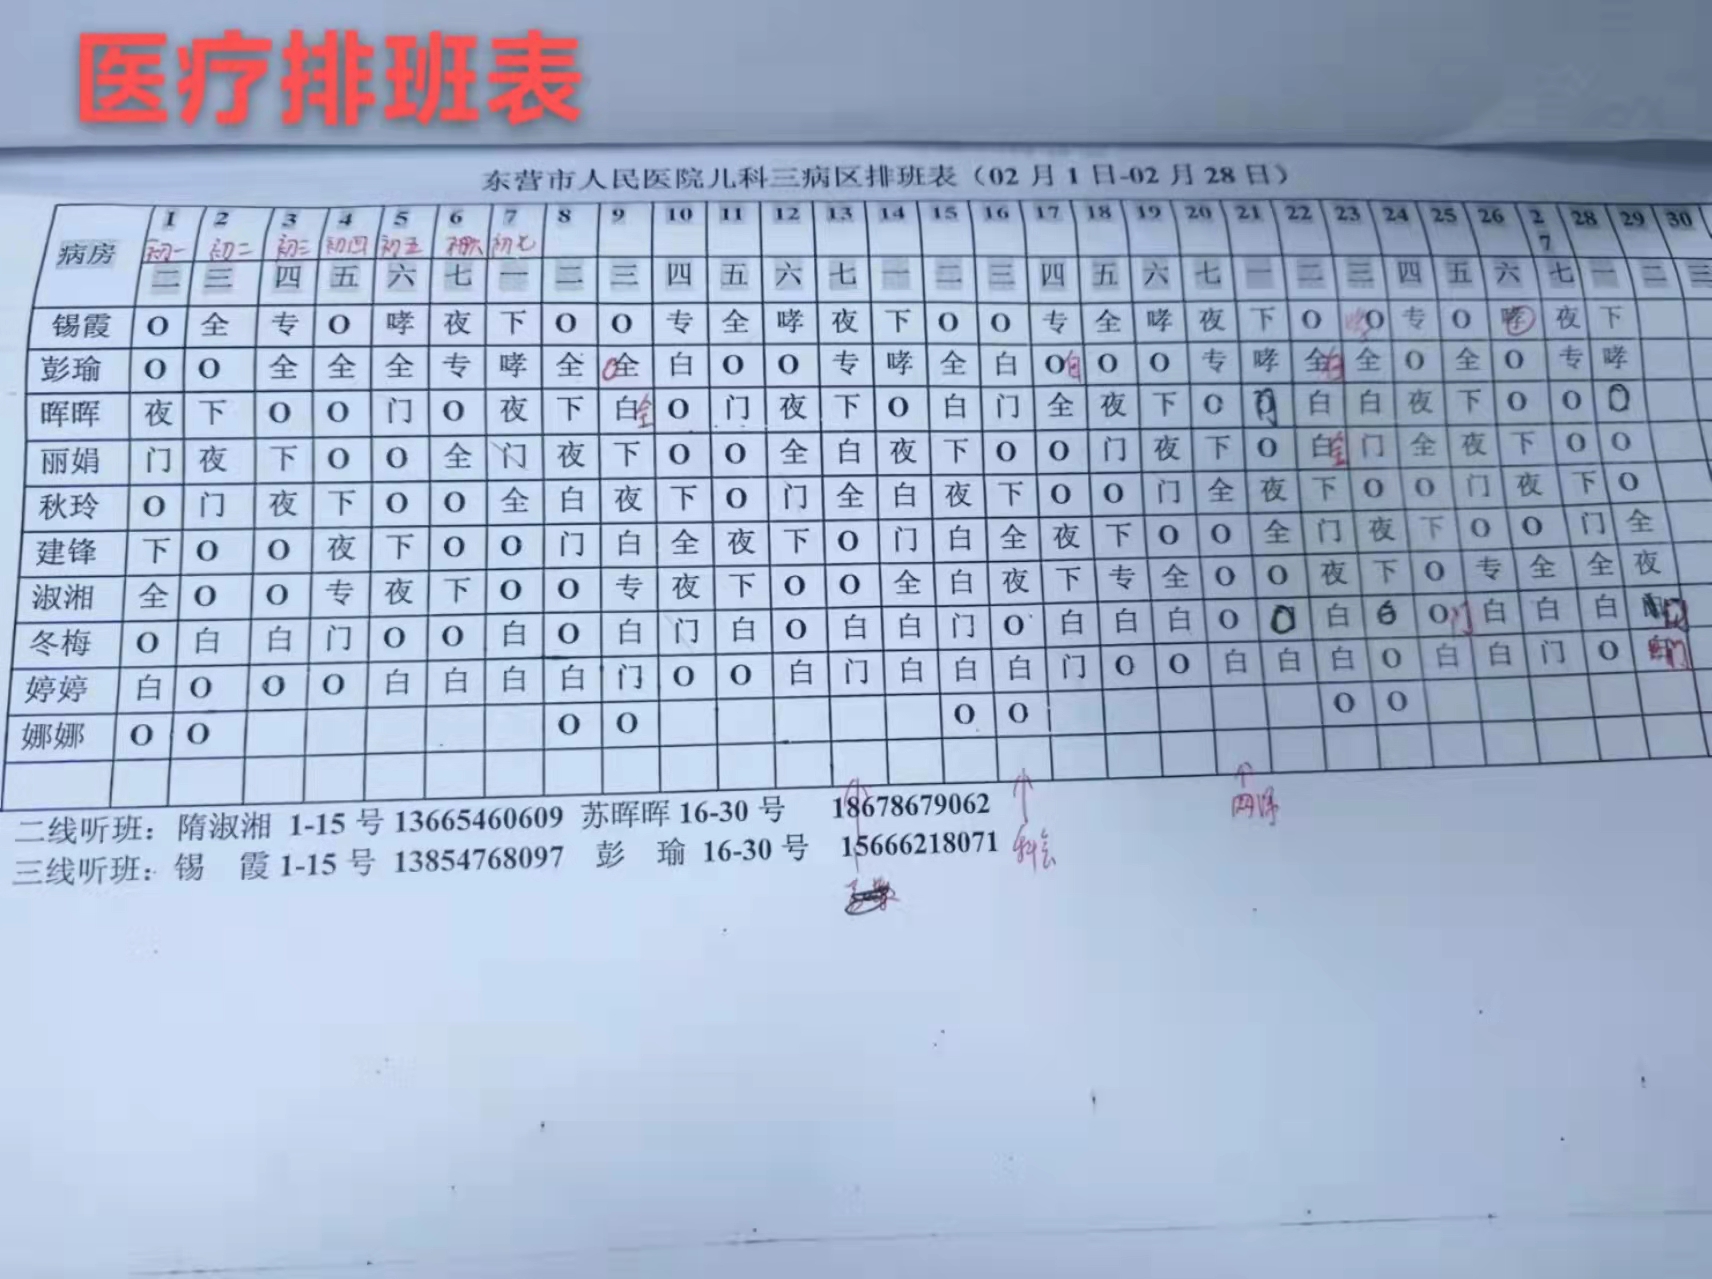 医疗排班表
东营市人民医院儿科三病区排班表（02月1日-02月28日）
病房 1 2 3 4 5 6 7 8 9 10 11 12 13 14 15 16 17 18 19 20 21 22 23 24 25 26 27 28 29 30
初一 初二 初三 初四 初五 初六 初七
二 三 四 五 六 七 一 二 三 四 五 六 七 一 二 三 四 五 六 七 一 二 三 四 五 六 七 一 二 三
锡霞 O 全 专 O 哮 夜 下 O O 专 全 哮 夜 下 O O 专 全 哮 夜 下 O O 专 O 哮 夜 下
彭瑜 O O 全 全 全 专 哮 全 O 全 白 O O 专 哮 全 白 O 白 O O 专 哮 全 白 全 O 全 O 专 哮
晖晖 夜 下 O O 门 O 夜 下 白 全 O 门 夜 下 O 白 门 全 夜 下 O 白 白 夜 下 O O O
丽娟 门 夜 下 O O 全 门 夜 下 O O 全 白 夜 下 O O 门 夜 下 O 白 全 门 全 夜 下 O O
秋玲 O 门 夜 下 O O 全 白 夜 下 O 门 全 白 夜 下 O O 门 全 夜 下 O O 门 夜 下 O
建锋 下 O O 夜 下 O O 门 白 全 夜 下 O 门 白 全 夜 下 O O 全 门 夜 下 O O 门 全
淑湘 全 O O 专 夜 下 O O 专 夜 下 O O 全 白 夜 下 专 全 O O 夜 下 O 专 全 全 夜
冬梅 O 白 白 门 O O 白 O 白 门 白 O 白 白 门 O 白 白 白 O O 白 O 门 白 白 白
婷婷 白 O O O 白 白 白 白 门 O O 白 门 白 白 白 门 O O 白 白 白 O 白 白 门 O
娜娜 O O O O O O O O
二线听班：隋淑湘 1-15号 13665460609 苏晖晖 16-30号 18678679062
三线听班：锡 霞 1-15号 13854768097 彭 瑜 16-30号 15666218071
科会